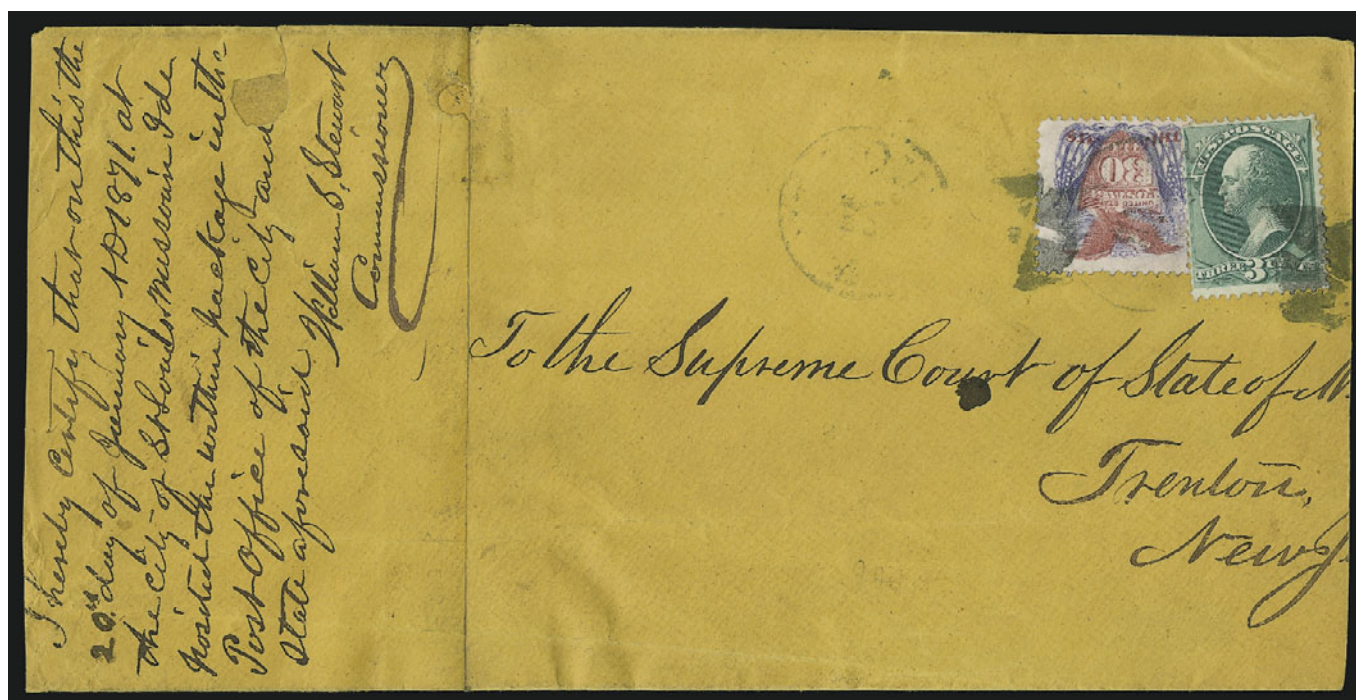 I hereby Certify that on this the
20th day of January AD 1871. at
the City of St Louis Missouri I de
posited the within package in the
Post Office of the City and
State aforesaid
William S. Stewart
Commissioner
U.S. POSTAGE
THREE 3 CENTS
30
UNITED STATES
To the Supreme Court of State of N
Trenton,
New J